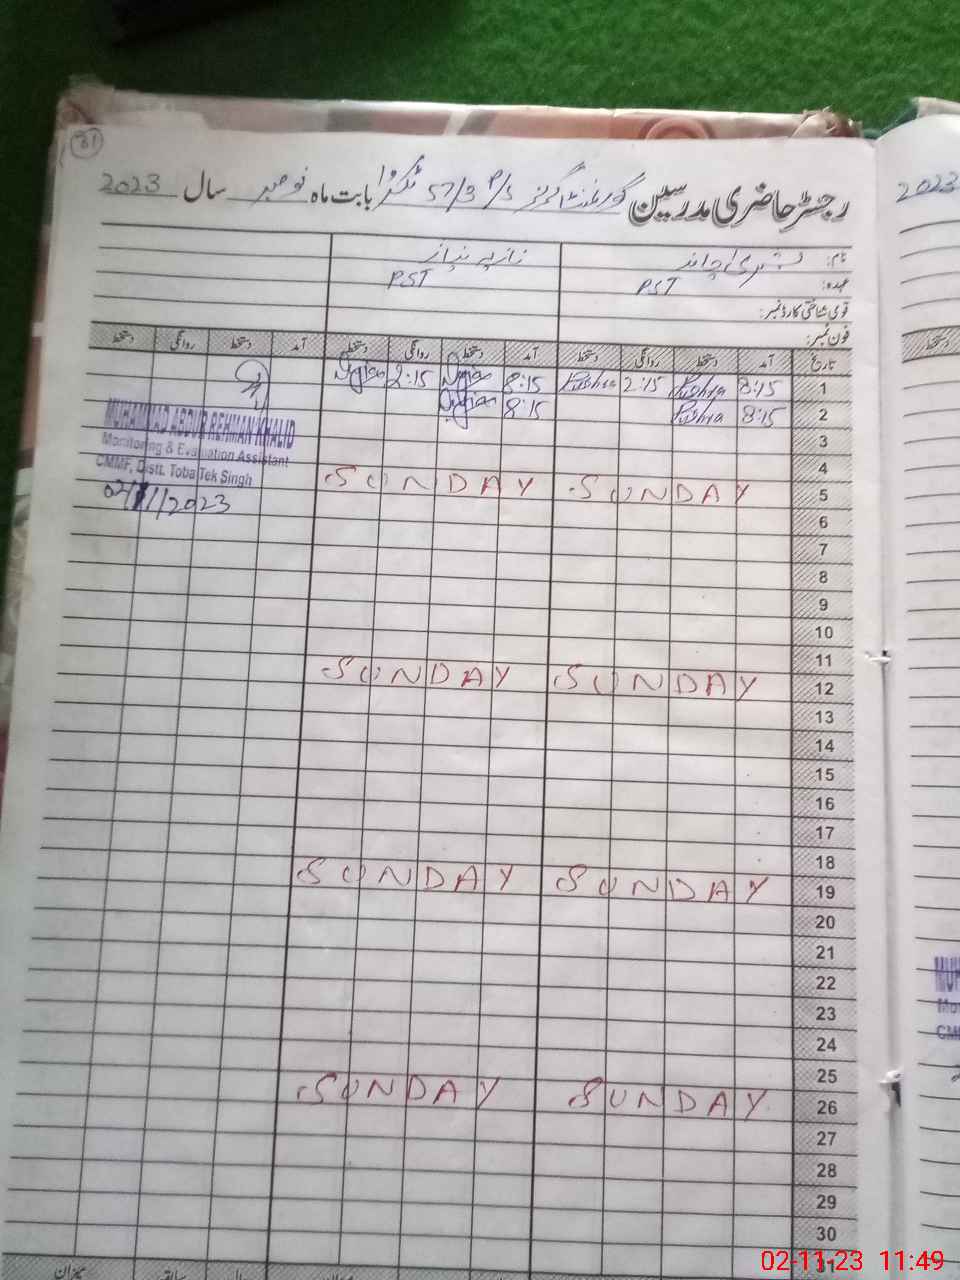 31
رجسٹر حاضری مدرسین گورنمنٹ گرلز P/S 57/3 ٹکڑا بابت ماہ نومبر سال 2023
2023
نام:
نازیہ نیاز
عہدہ: PST
PST
قومی شناختی کارڈ نمبر:
فون نمبر:
تاریخ آمد دستخط روانگی دستخط آمد دستخط روانگی دستخط آمد دستخط روانگی دستخط
دستخط
1 8:15 Pushra 2:15 Pushra 8:15 2:15
2 8:15 Pushra 8:15
MUHAMMAD ABDUR REHMAN KHALID
Monitoring & Evaluation Assistant
CMMF, Distt. Toba Tek Singh
02/11/2023
3
4
5 SUNDAY SUNDAY
6
7
8
9
10
11
12 SUNDAY SUNDAY
13
14
15
16
17
18
19 SUNDAY SUNDAY
20
21
22
23
24
25
26 SUNDAY SUNDAY
27
28
29
30
31
میزان
02-11-23 11:49